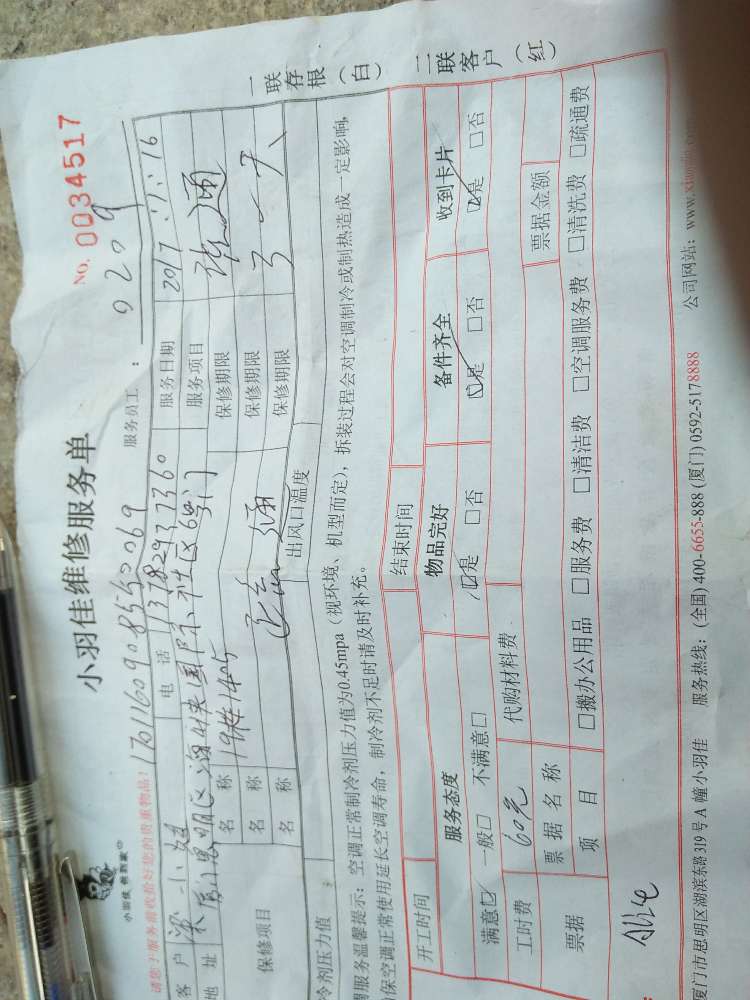 小羽佳维修服务单
NO. 0034517
小羽佳
请您于服务前收拾好您的贵重物品!
服务员工: 0209
客户 电话 13782937360 服务日期 2017.1.16
地址 服务项目
19栋1405
保修项目 名称 保修期限
名称 保修期限 三天
名称 保修期限
冷剂压力值 出风口温度
调服务温馨提示:空调正常制冷剂压力值为0.45mpa(视环境、机型而定),拆装过程会对空调制冷或制热造成一定影响,
保空调正常使用延长空调寿命,制冷剂不足时请及时补充。
一联存根(白) 二联客户(红)
开工时间 结束时间
服务态度 物品完好 备件齐全 收到卡片
满意☑ 一般□ 不满意□ ☑是 □否 ☑是 □否 ☑是 □否
工时费 60元 代购材料费
票据 票据名称 票据金额
项目 □搬办公用品 □服务费 □清洁费 □空调服务费 □清洗费 □疏通费
厦门市思明区湖滨东路319号A幢小羽佳 服务热线:(全国)400-6655-888 (厦门)0592-5178888 公司网站:www.